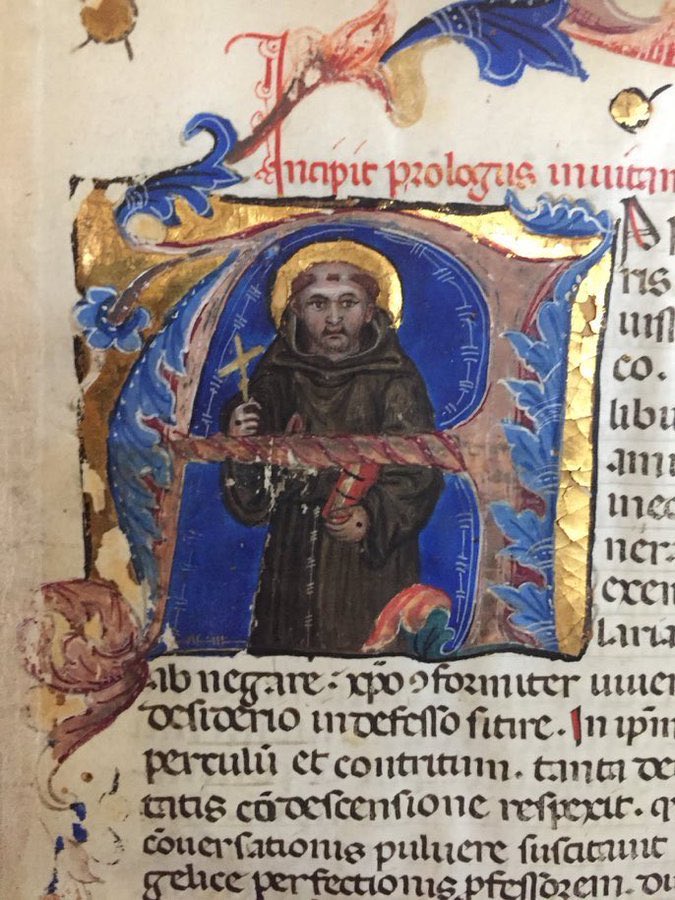 Incipit prologus inuitam
AP
ris
uiss
co.
libu
ami
ner
exem
laria
ab negare: xp̄o ꝯformiter uiuer
desiderio indefesso sitire. In ip̄m
perculū et contritum. tanta de
tatis cōdescensione respexit. q
cōuersationis puluere suscitauit
gelice perfectionis ꝓfessorem. du